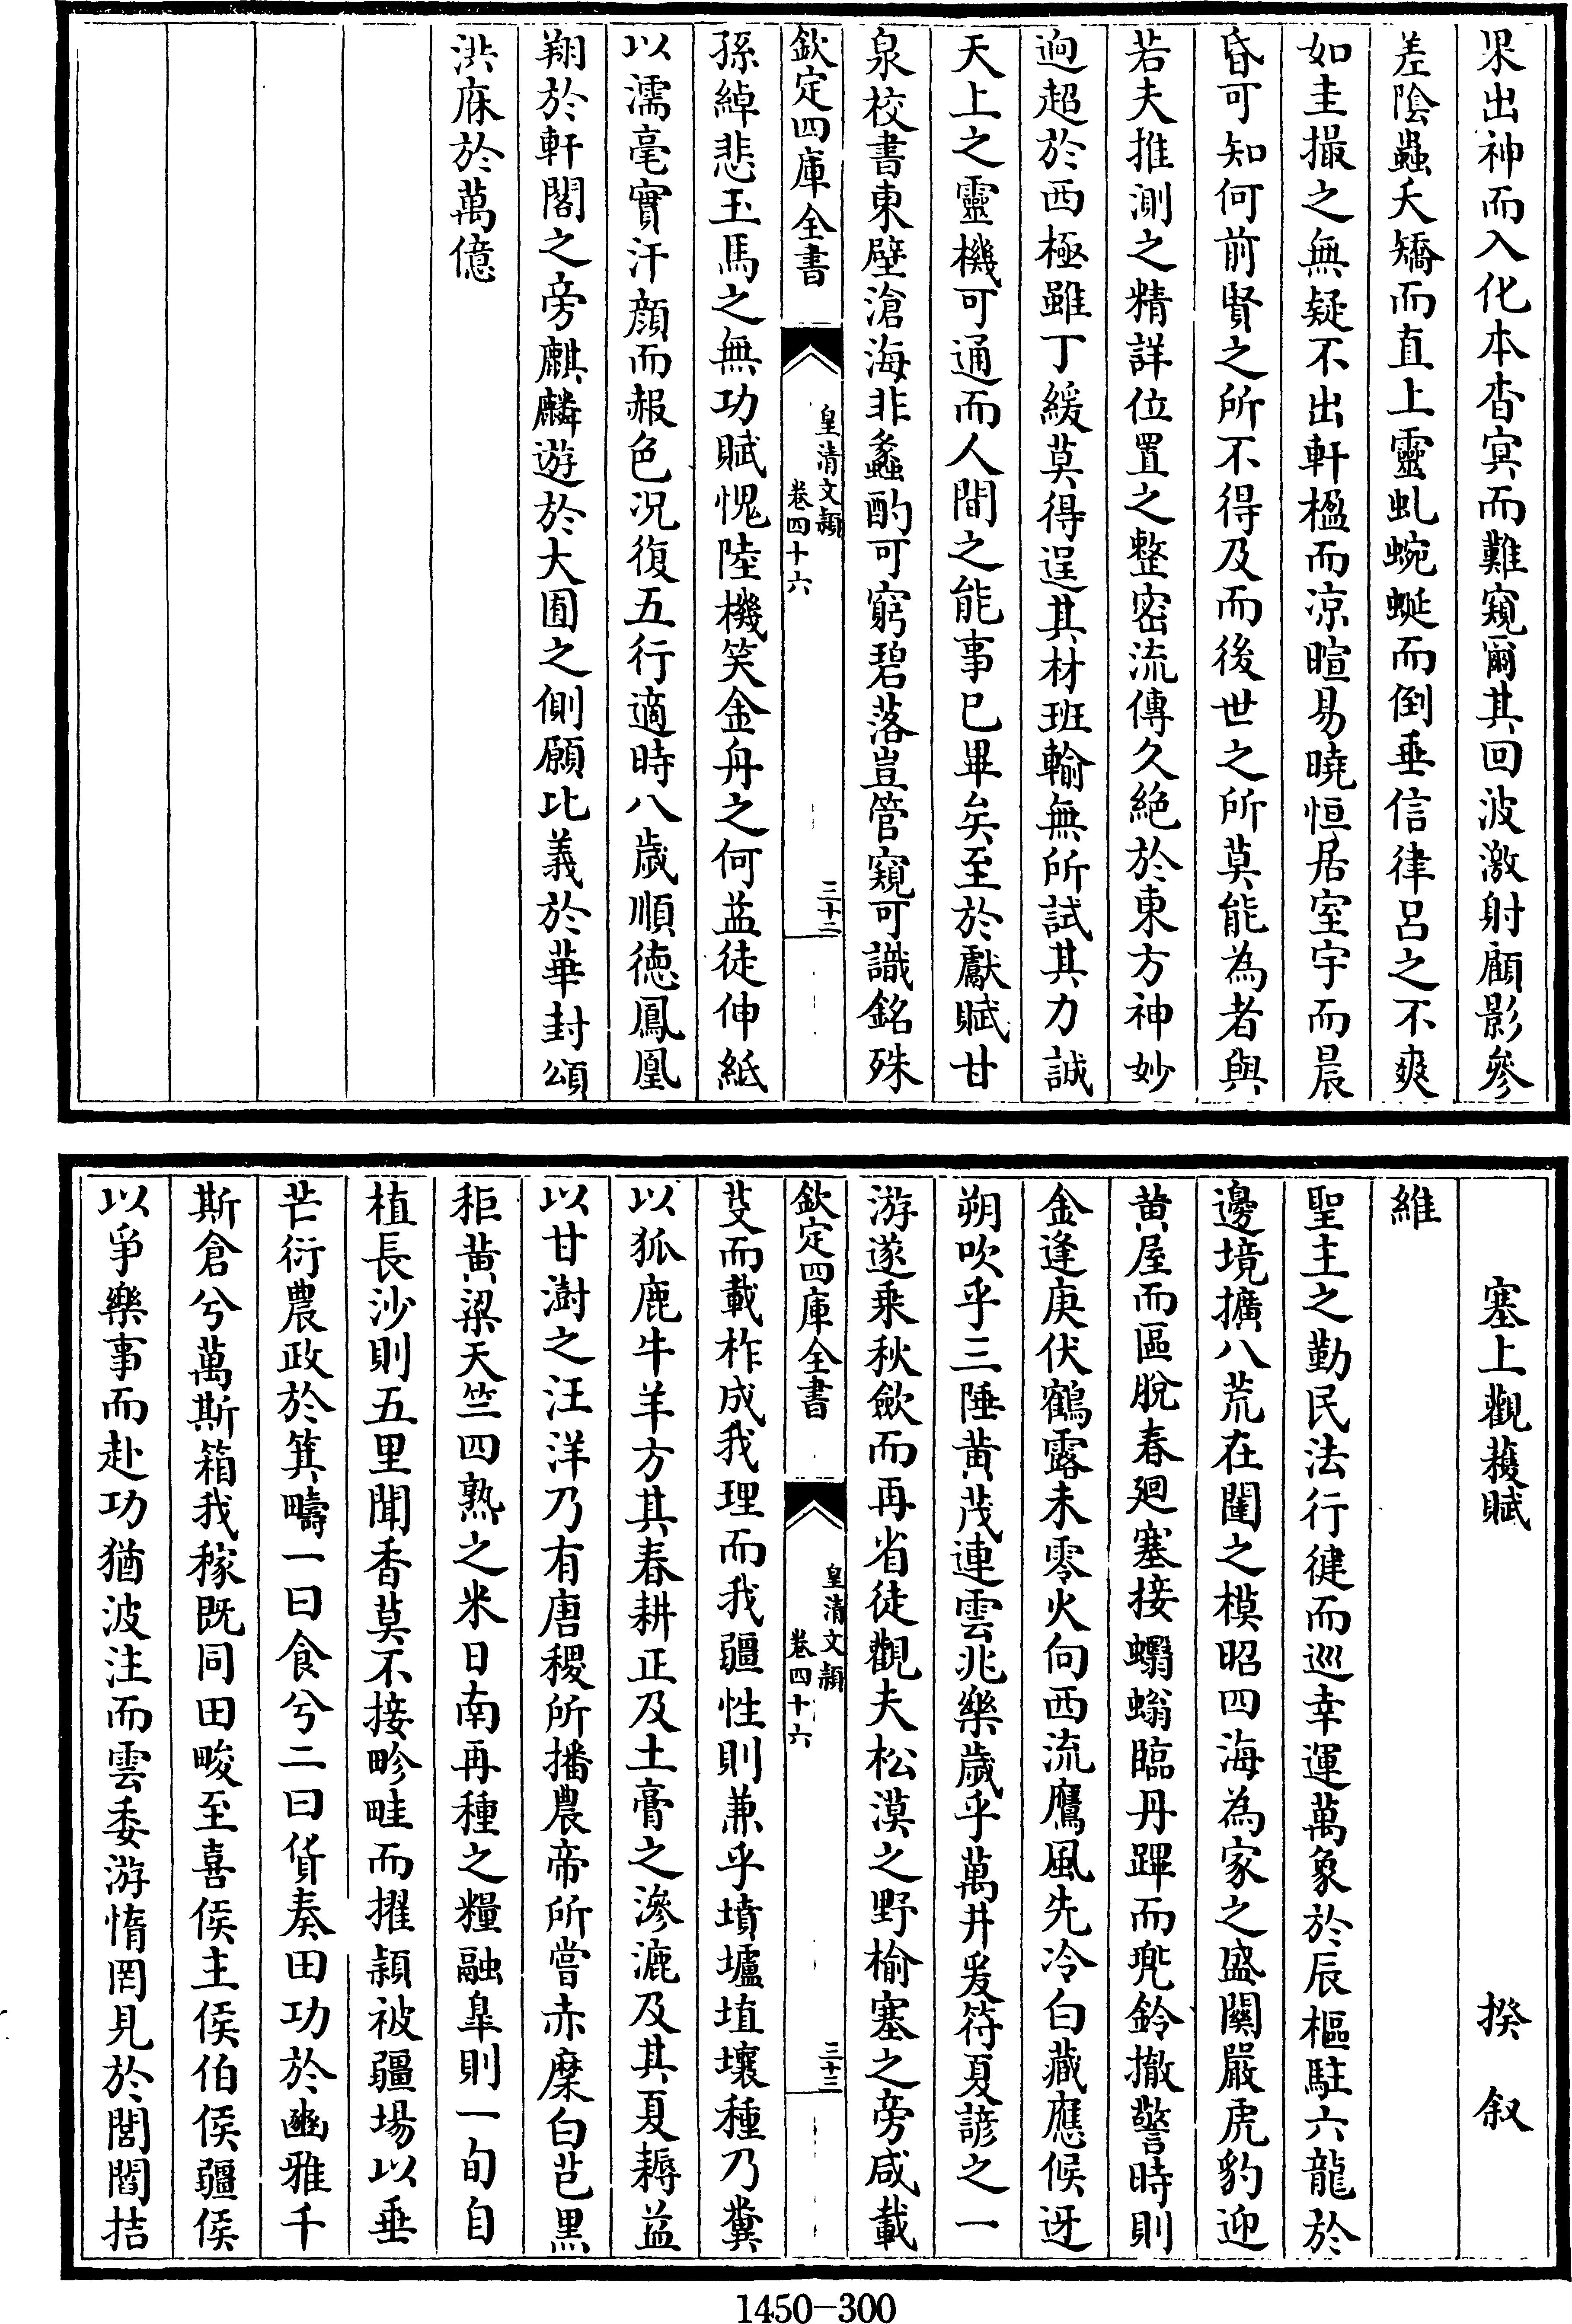 果出神而入化本杳㝠而難窺爾其回波激射顧影參
差陰蟲夭矯而直上靈虬蜿蜒而倒垂信律呂之不爽
如圭撮之無疑不出軒楹而凉暄易曉恒居室宇而晨
昏可知何前賢之所不得及而後世之所莫能為者與
若夫推測之精詳位置之整密流傳久絶於東方神妙
逈超於西極雖丁緩莫得逞其材班輸無所試其力誠
天上之靈機可通而人間之能事已畢矣至於獻賦甘
泉校書東壁滄海非蠡酌可窮碧落豈管窺可識銘殊
欽定四庫全書
皇清文穎
卷四十六
三十二
孫綽悲玉馬之無功賦愧陸機笑金舟之何益徒伸紙
以濡毫實汗顔而赧色况復五行適時八歲順徳鳳凰
翔於軒閣之旁麒麟遊於大囿之側願比義於華封頌
洪庥於萬億
塞上觀穫賦 揆叙
維
聖主之勤民法行健而巡幸運萬象於辰樞駐六龍於
邊境擴八荒在闥之模昭四海為家之盛關嚴虎豹迎
黄屋而區脫春廻塞接蠮螉臨丹蹕而兠鈴撤警時則
金逢庚伏鶴露未零火向西流鷹風先冷白藏應候迓
朔吹乎三陲黄茂連雲兆樂歲乎萬井爰符夏諺之一
游遂乘秋歛而再省徒觀夫松漠之野榆塞之旁咸載
欽定四庫全書
皇清文穎
卷四十六
三十三
芟而載柞成我理而我疆性則兼乎墳壚埴壤種乃糞
以狐鹿牛羊方其春耕正及土膏之滲漉及其夏耨益
以甘澍之汪洋乃有唐稷所播農帝所嘗赤穈白芑黑
秬黄粱天竺四熟之米日南再種之糧融臯則一旬自
植長沙則五里聞香莫不接畛畦而擢穎被疆場以垂
芒衍農政於箕疇一曰食兮二曰貨奏田功於豳雅千
斯倉兮萬斯箱我稼既同田畯至喜侯主侯伯侯疆侯
以爭樂事而赴功猶波注而雲委游惰罔見於閭閻拮
1450-300